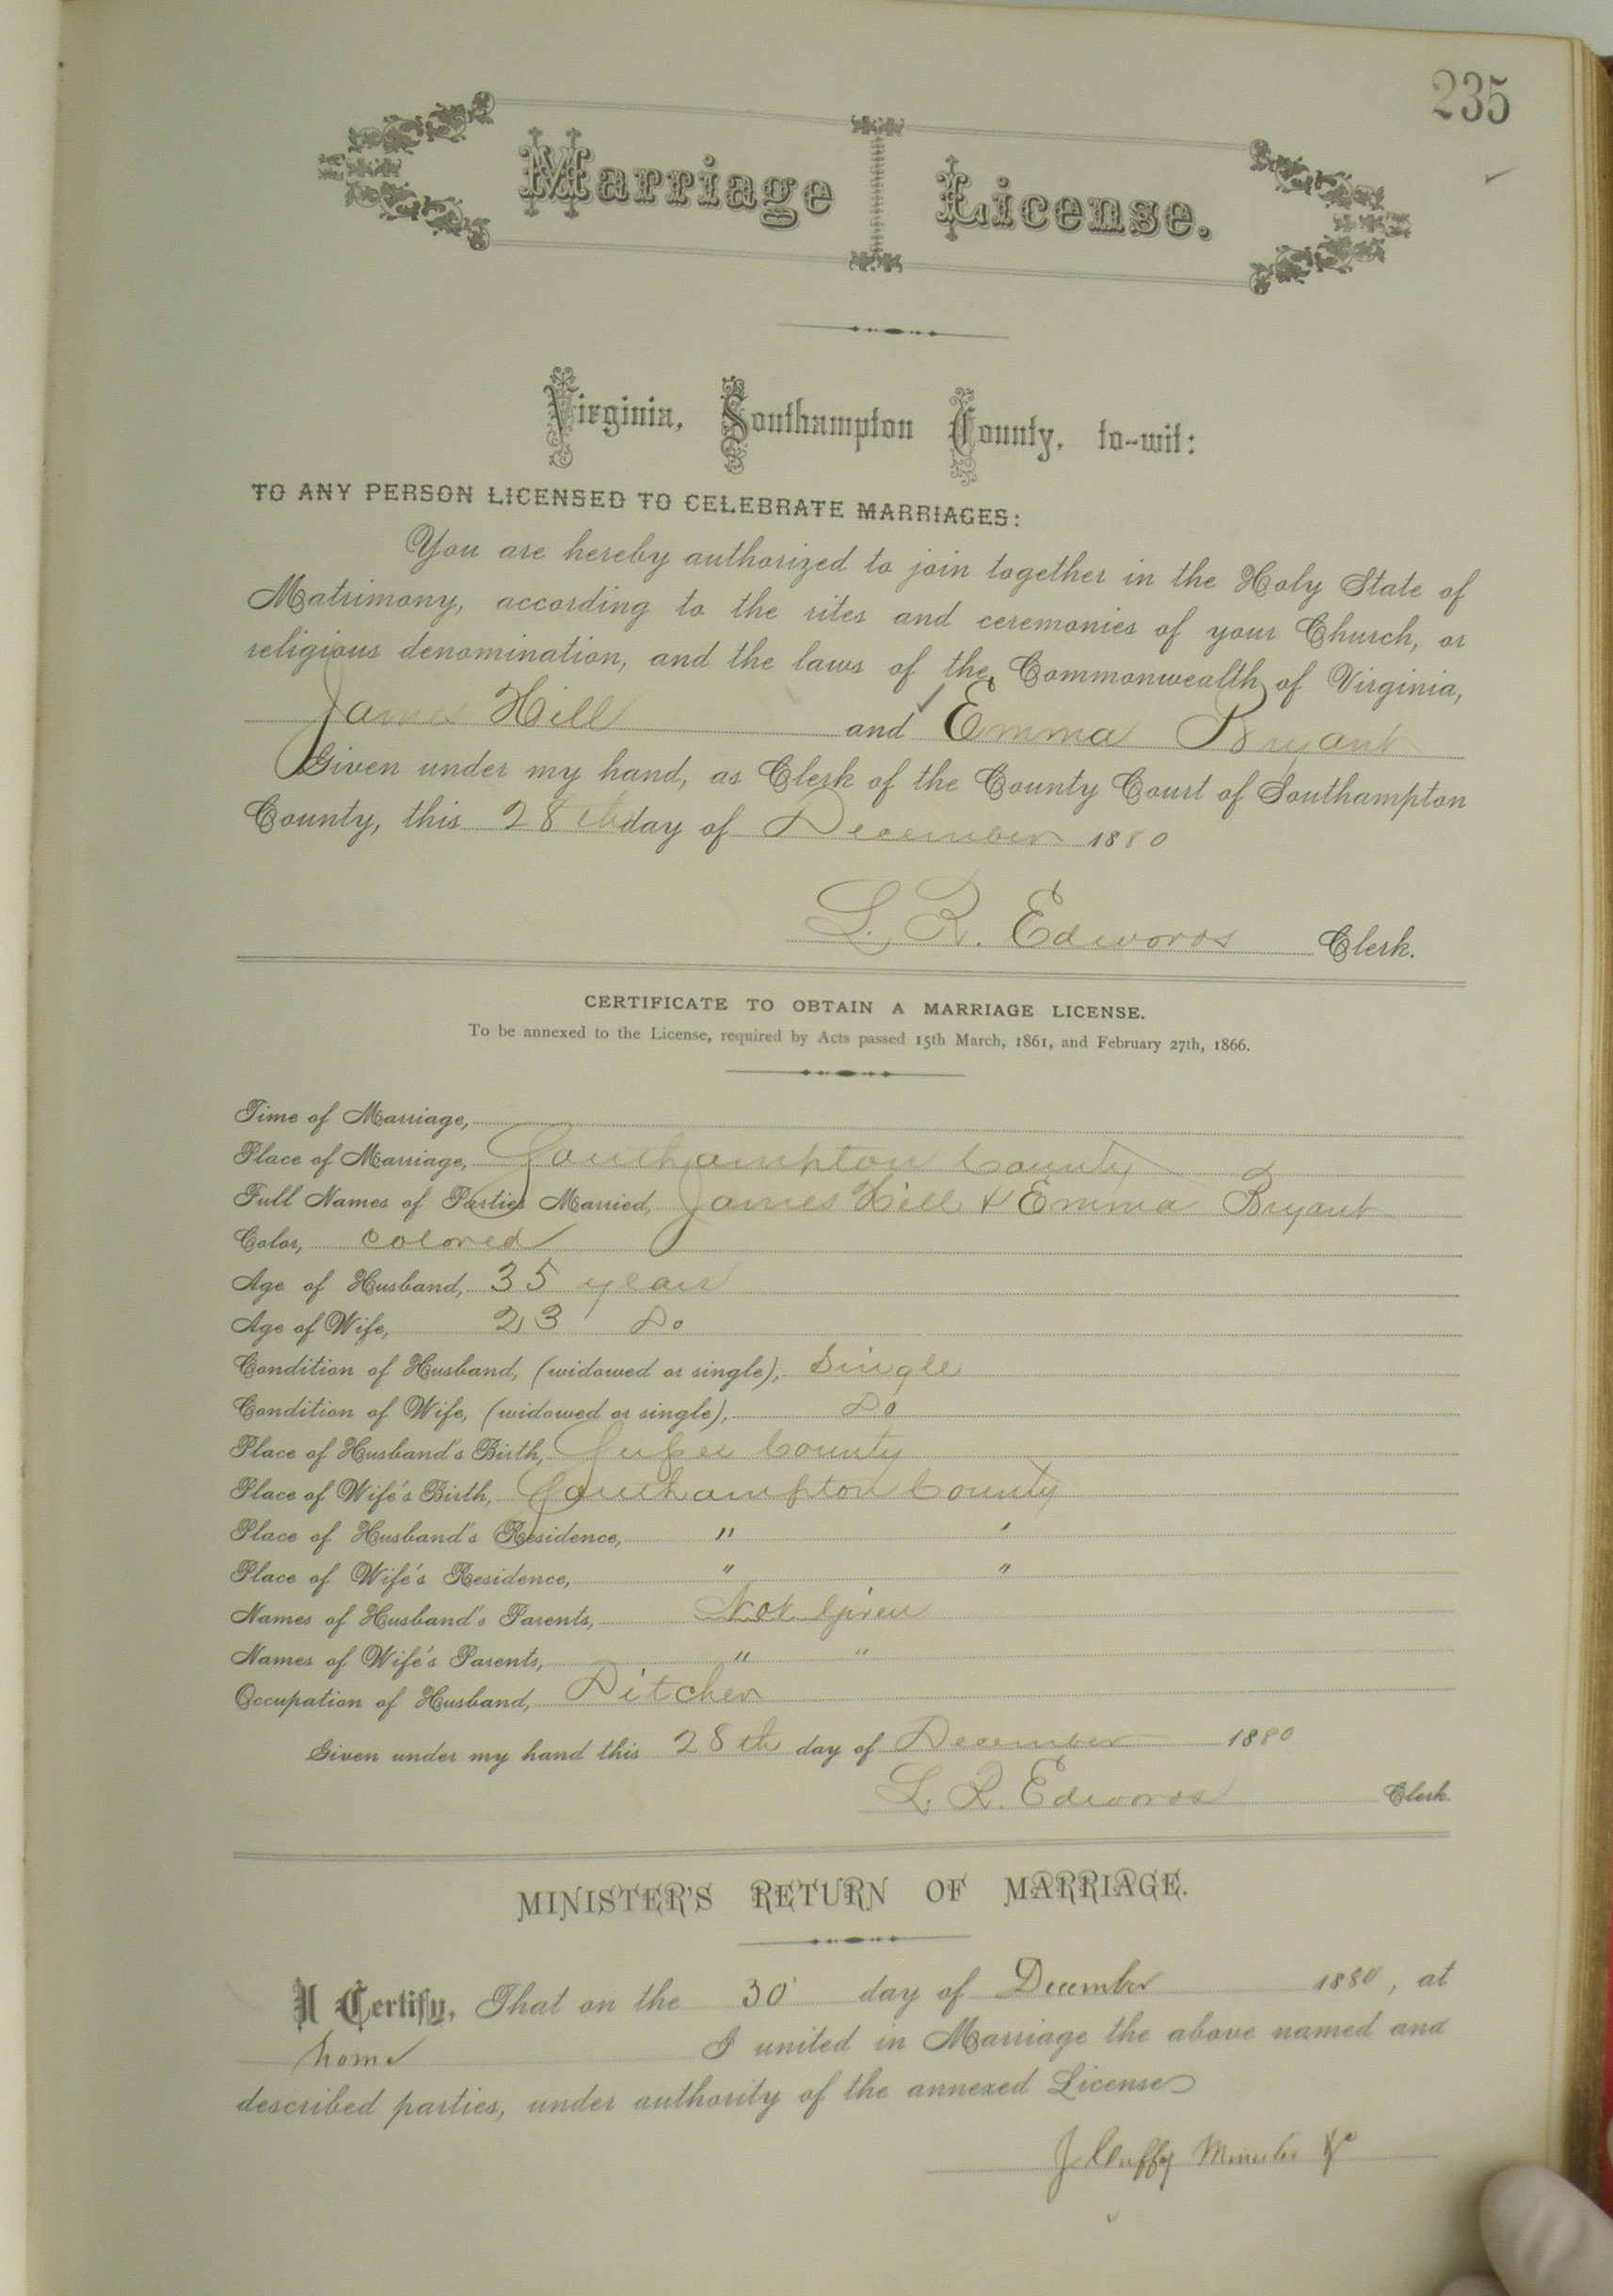 235
Marriage License.
Virginia, Southampton County, to-wit:
TO ANY PERSON LICENSED TO CELEBRATE MARRIAGES:
You are hereby authorized to join together in the Holy State of
Matrimony, according to the rites and ceremonies of your Church, or
religious denomination, and the laws of the Commonwealth of Virginia,
James Hill and Emma Bryant
Given under my hand, as Clerk of the County Court of Southampton
County, this 28th day of December 1880
L. R. Edwards Clerk.
CERTIFICATE TO OBTAIN A MARRIAGE LICENSE.
To be annexed to the License, required by Acts passed 15th March, 1861, and February 27th, 1866.
Time of Marriage,
Place of Marriage, Southampton County
Full Names of Parties Married, James Hill & Emma Bryant
Color, Colored
Age of Husband, 35 years
Age of Wife, 23 Do
Condition of Husband, (widowed or single), Single
Condition of Wife, (widowed or single), Do
Place of Husband's Birth, County
Place of Wife's Birth, Southampton County
Place of Husband's Residence, " "
Place of Wife's Residence, " "
Names of Husband's Parents, Not Given
Names of Wife's Parents, " "
Occupation of Husband, Ditcher
Given under my hand this 28th day of December 1880
L. R. Edwards Clerk.
MINISTER'S RETURN OF MARRIAGE.
I Certify, That on the 30 day of December 1880, at
home I united in Marriage the above named and
described parties, under authority of the annexed License
J Cuffy Minister &c